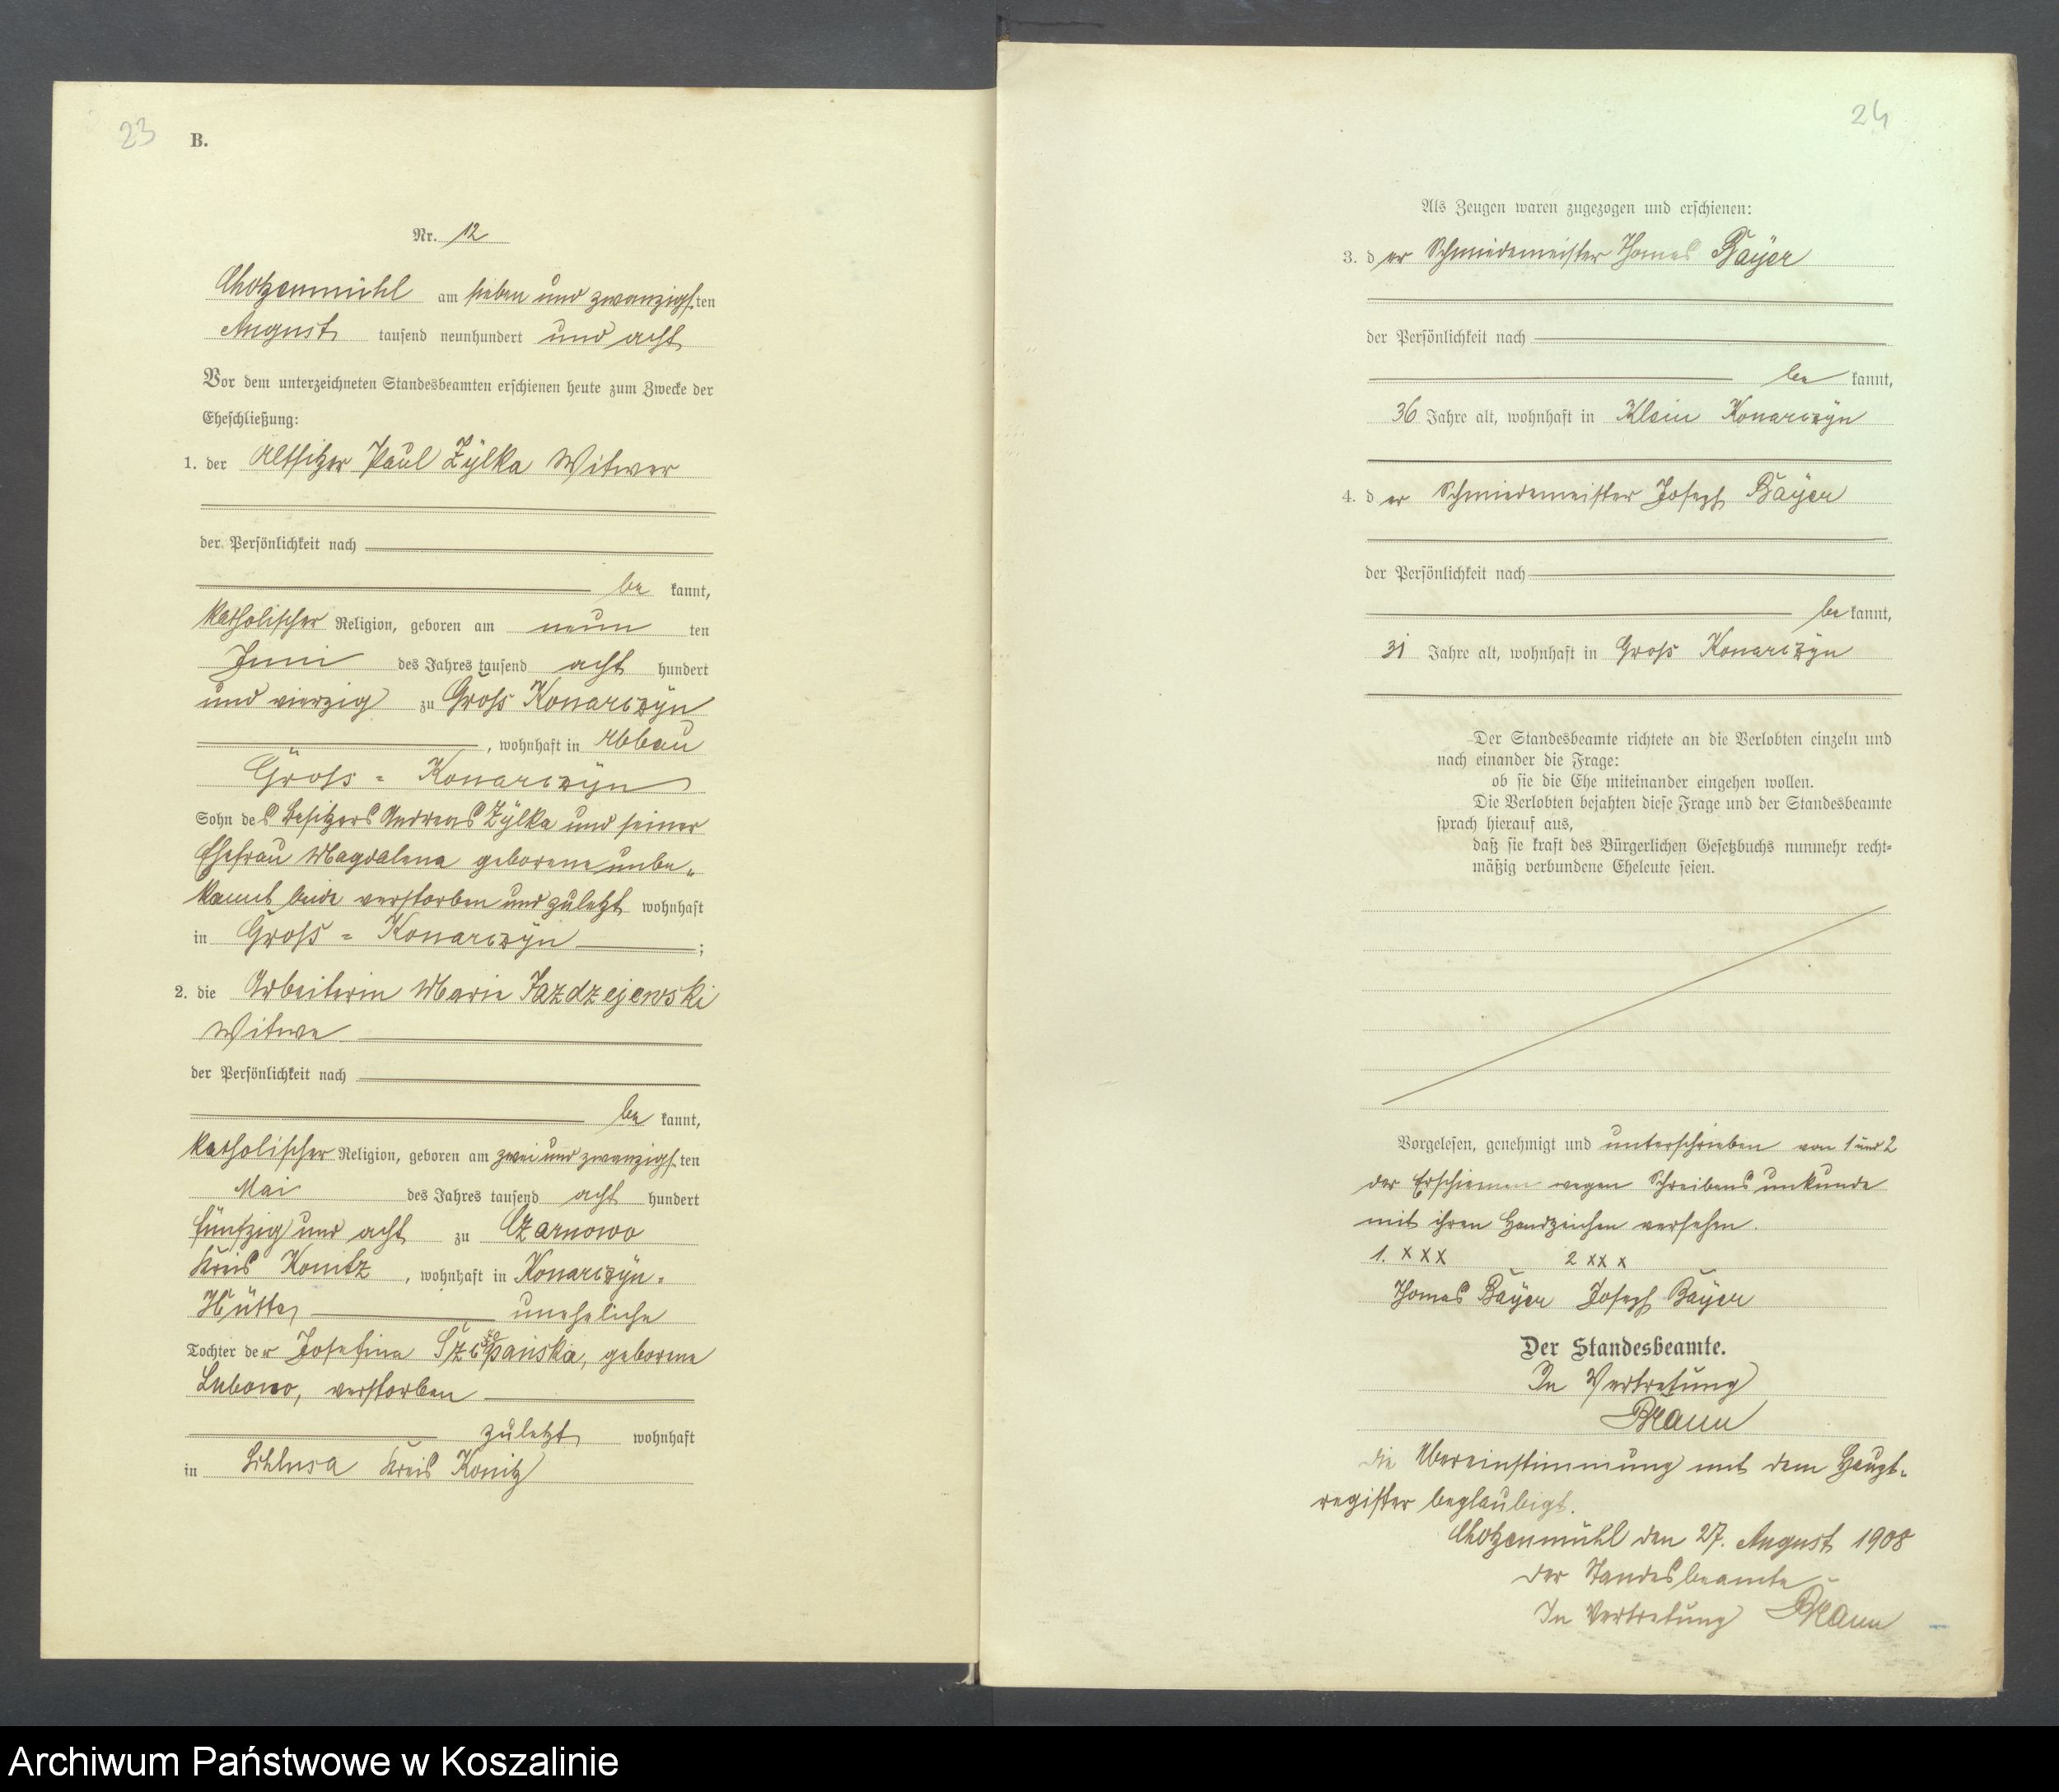 23
B.
Nr. 12
Chotzenmühl am sieben und zwanzigsten
August tausend neunhundert und acht
Vor dem unterzeichneten Standesbeamten erschienen heute zum Zwecke der
Eheschließung:
1. der Altsitzer Paul Zylka Witwer
der Persönlichkeit nach
be kannt,
katholischer Religion, geboren am neun ten
Juni des Jahres tausend acht hundert
und vierzig zu Gross Konarczyn
, wohnhaft in Abbau
Gross - Konarczyn
Sohn des Besitzers Andreas Zylka und seiner
Ehefrau Magdalena geborene unbe-
kannt beide verstorben und zuletzt wohnhaft
in Gross - Konarczyn ;
2. die Arbeiterin Marie Jazdzejewski
Witwe
der Persönlichkeit nach
be kannt,
katholischer Religion, geboren am zwei und zwanzigsten
Mai des Jahres tausend acht hundert
fünfzig und acht zu Czarnowo
Kreis Konitz , wohnhaft in Konarczyn-
Hütte, uneheliche
Tochter der Josefine Szczepanska, geborene
Lubowo, verstorben
zuletzt wohnhaft
in Kreis Konitz
24
Als Zeugen waren zugezogen und erschienen:
3. der Schmiedemeister Thomas Bayer
der Persönlichkeit nach
be kannt,
36 Jahre alt, wohnhaft in Klein Konarczyn
4. der Schmiedemeister Joseph Bayer
der Persönlichkeit nach
be kannt,
31 Jahre alt, wohnhaft in Gross Konarczyn
Der Standesbeamte richtete an die Verlobten einzeln und
nach einander die Frage:
ob sie die Ehe miteinander eingehen wollen.
Die Verlobten bejahten diese Frage und der Standesbeamte
sprach hierauf aus,
daß sie kraft des Bürgerlichen Gesetzbuchs nunmehr recht-
mäßig verbundene Eheleute seien.
Vorgelesen, genehmigt und unterschrieben von 1 und 2
der Erschienen wegen Schreibensunkunde
mit ihren Handzeichen versehen.
1. x x x 2 xx x
Thomas Bayer Joseph Bayer
Der Standesbeamte.
In Vertretung
die Übereinstimmung mit dem Haupt-
register beglaubigt.
Chotzenmühl den 27. August 1908
Der Standesbeamte
In Vertretung
Archiwum Państwowe w Koszalinie